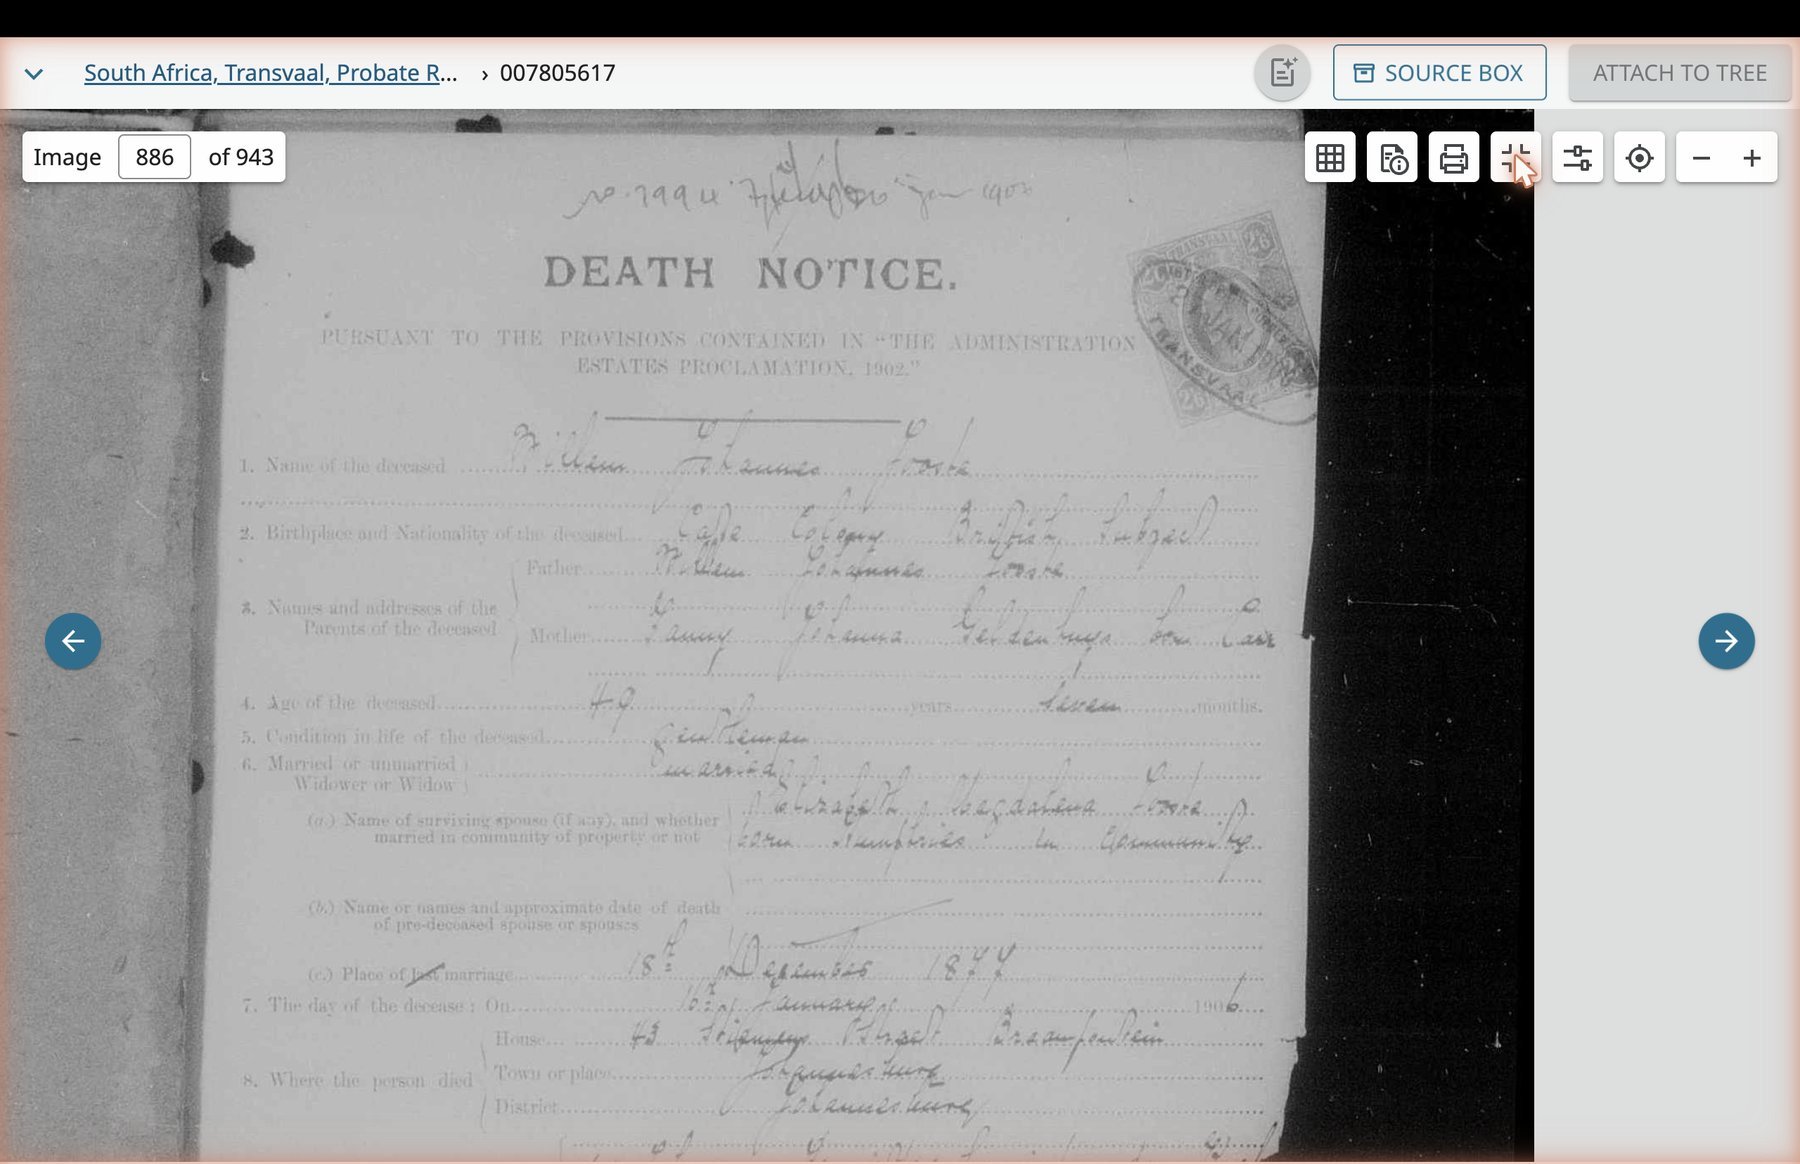 South Africa, Transvaal, Probate R... › 007805617
SOURCE BOX
ATTACH TO TREE
Image 886 of 943
1902
DEATH NOTICE.
TRANSVAAL
2/6
JAN
TRANSVAAL
2/6
PURSUANT TO THE PROVISIONS CONTAINED IN “THE ADMINISTRATION
ESTATES PROCLAMATION, 1902.”
1. Name of the deceased Willem Johannes Jooste
2. Birthplace and Nationality of the deceased Cape Colony British Subject
Father Willem Johannes Jooste
3. Names and addresses of the
Parents of the deceased
Mother Fanny Johanna Geldenhuys born Carr
4. Age of the deceased 49 years seven months.
5. Condition in life of the deceased Gentleman
6. Married or unmarried married
Widower or Widow
(a.) Name of surviving spouse (if any), and whether Elizabeth Magdalena Jooste
married in community of property or not born Humphries in Community
(b.) Name or names and approximate date of death
of pre-deceased spouse or spouses
(c.) Place of last marriage 18th December 1877
7. The day of the decease: On 16th January 1906
House 43 Street Braamfontein
8. Where the person died
Town or place Johannesburg
District Johannesburg